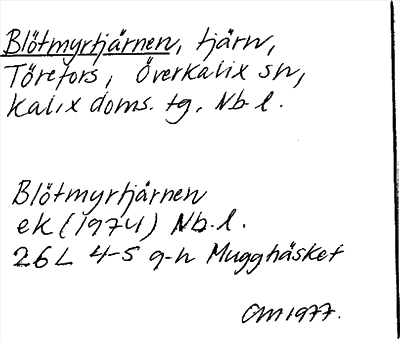 Blötmyrtjärnen, tjärn,
Törefors, Överkalix sn,
Kalix doms. tg, Nb. l.
Blötmyrtjärnen
ek (1974) Nb. l.
26L 4-5 g-h Mugghäsket
CM 1977.